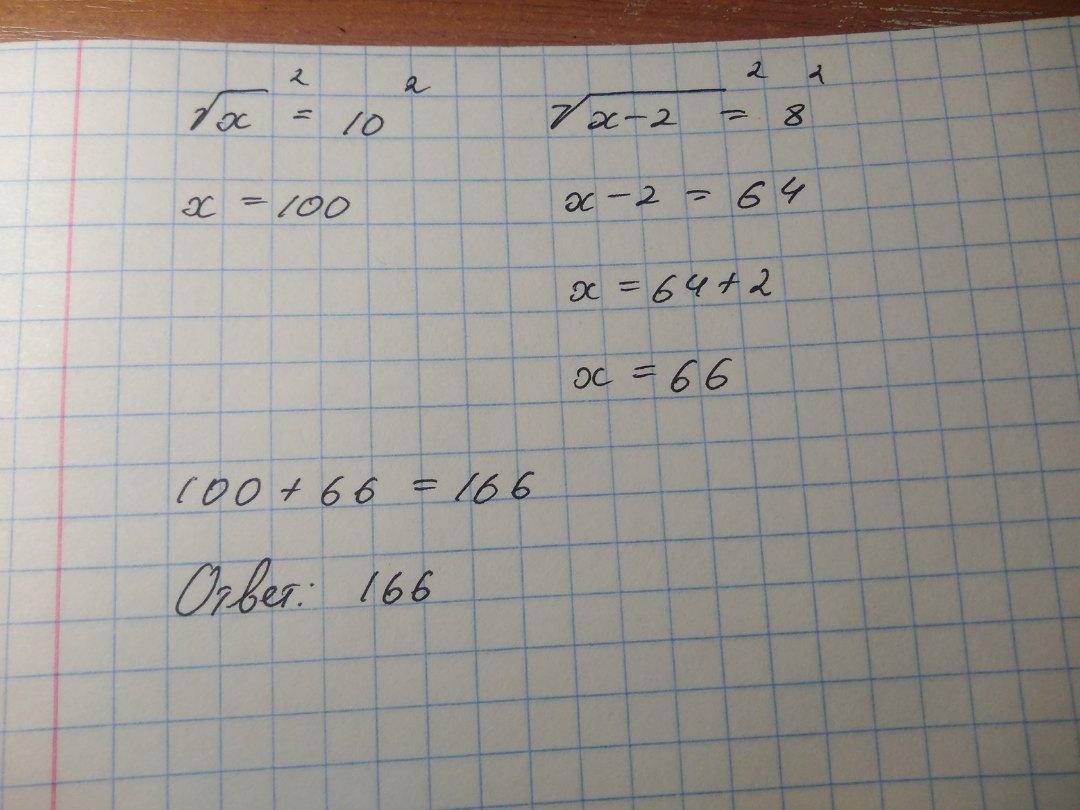 √x² = 10²    √x-2² = 8²
x = 100    x - 2 = 64
x = 64 + 2
x = 66
100 + 66 = 166
Ответ: 166